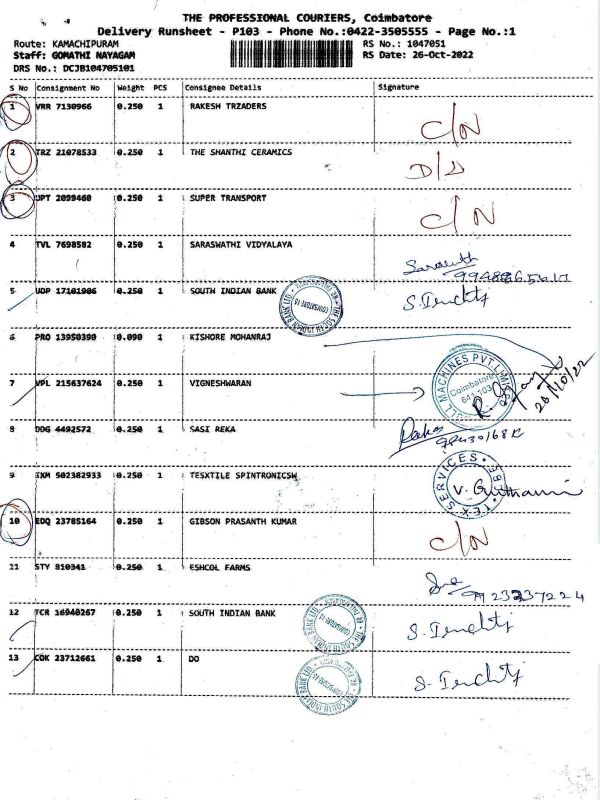 THE PROFESSIONAL COURIERS, Coimbatore
Delivery Runsheet - P103 - Phone No.:0422-3505555 - Page No.:1
Route: KAMACHIPURAM RS No.: 1047051
Staff: GOMATHI NAYAGAM RS Date: 26-Oct-2022
DRS No.: DCJB104705101
S No Consignment No Weight PCS Consignee Details Signature
1 VRR 7130966 0.250 1 RAKESH TRZADERS C/N
2 TRZ 21078533 0.250 1 THE SHANTHI CERAMICS D/D
3 UPT 2099460 0.250 1 SUPER TRANSPORT C/N
4 TVL 7698582 0.250 1 SARASWATHI VIDYALAYA
5 UDP 17101986 0.250 1 SOUTH INDIAN BANK THE SOUTH INDIAN BANK LTD. COIMBATORE-15
6 PRO 13950390 0.090 1 KISHORE MOHANRAJ
7 VPL 215637624 0.250 1 VIGNESHWARAN MACHINES PVT LIMITED Coimbatore 641 103 26/10/22
8 DDG 4492572 0.250 1 SASI REKA
9 IXM 502382933 0.250 1 TESXTILE SPINTRONICSW TEX SERVICES
10 EDQ 23785164 0.250 1 GIBSON PRASANTH KUMAR C/N
11 STY 810341 0.250 1 ESHCOL FARMS
12 TCR 16940267 0.250 1 SOUTH INDIAN BANK THE SOUTH INDIAN BANK LTD. COIMBATORE-15
13 COK 23712661 0.250 1 DO THE SOUTH INDIAN BANK LTD. COIMBATORE-15